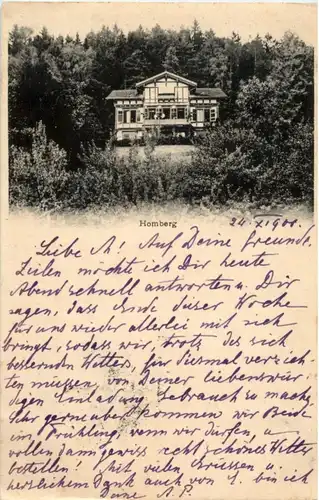 Homberg
24. XI. 1900.
Liebe A! Auf Deine freundl.
Zeilen möchte ich Dir heute
Abend schnell antworten u. Dir
sagen, dass Ende dieser Woche
für uns wieder allerlei mit sich
bringt, sodass wir, trotz des sich
bessernden Wetters, für diesmal verzich-
ten müssen, von Deiner liebenswür-
digen Einladung Gebrauch zu machen.
Sehr gerne aber kommen wir Beide
im Frühling, wenn wir dürfen, u.
wollen dann gewiss recht schönes Wetter
bestellen! Mit vielen Grüssen u.
herzlichem Dank auch von S. bin ich
Deine A. P.